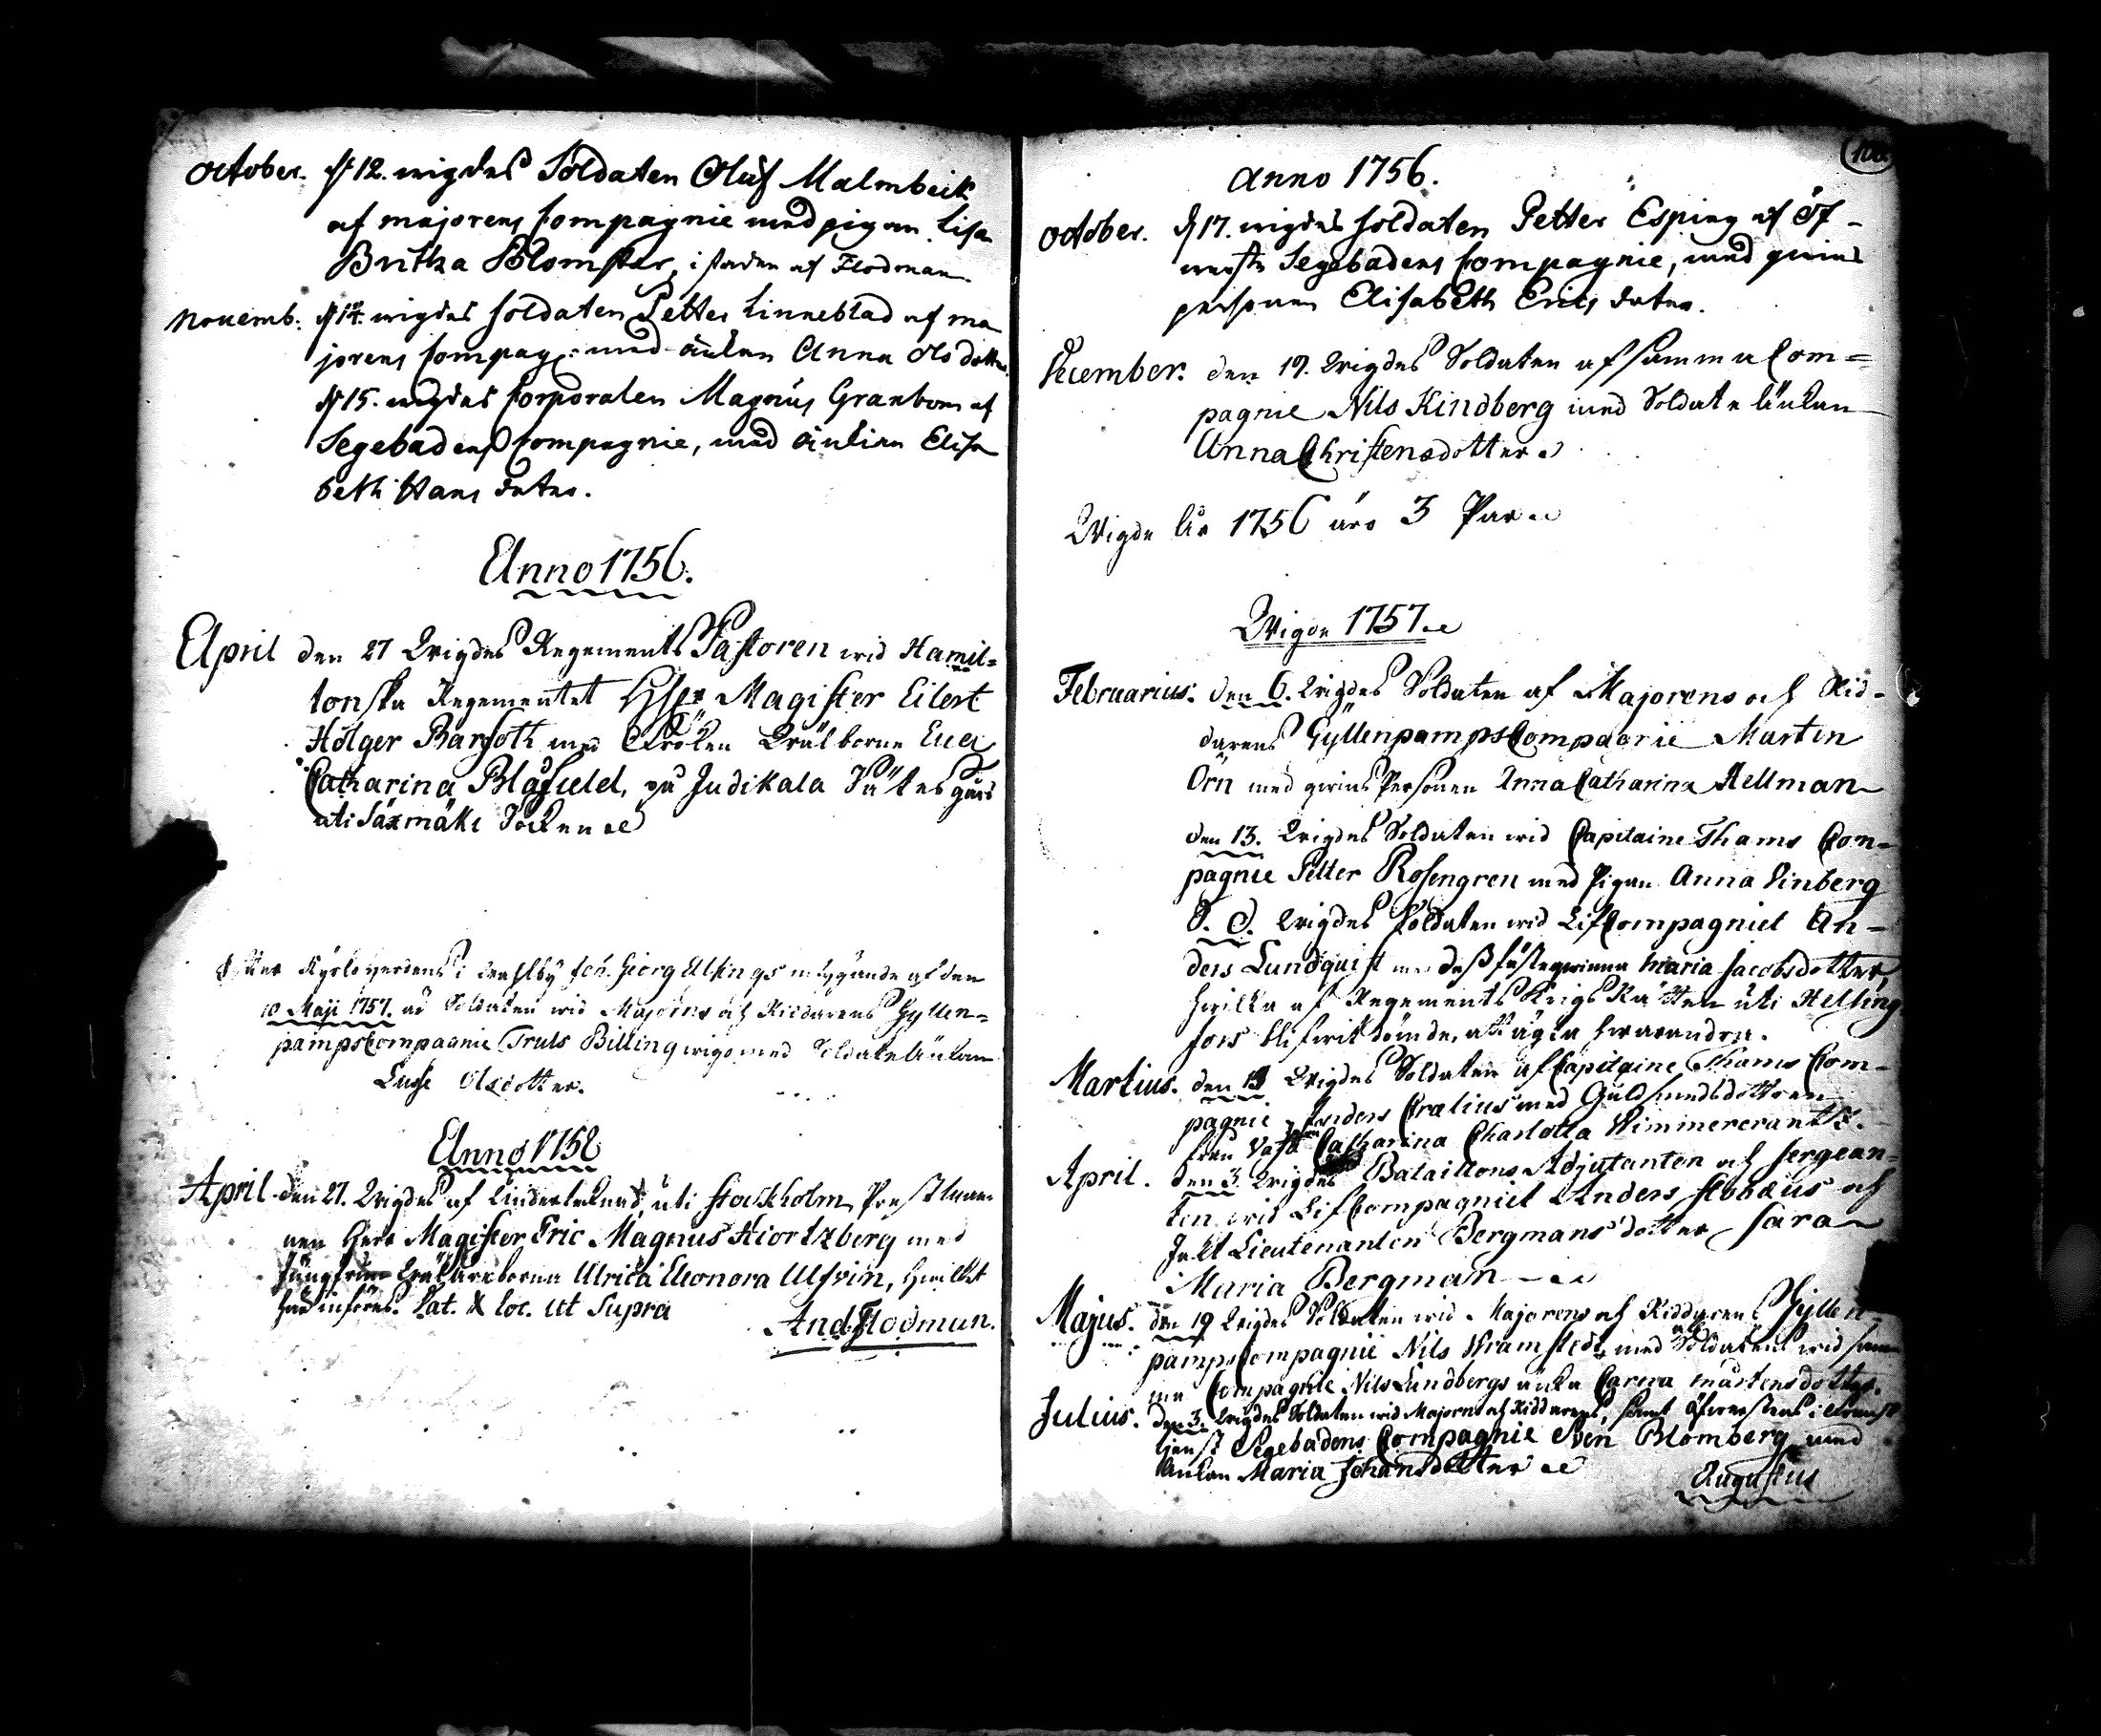 October. d 12. wigdes Soldaten Oluf Malmbeik
af majorens Compagnie med pigan Lisa
Britha Blomster, i staden af Flodman
Novemb: d 14. wigdes soldaten Petter Linneblad af ma
jorens Compag: med änkan Anna Ols dotter.
d 15. wigdes Corporalen Magnus Granbom af
Segebadens Compagnie, med änkian Elisa
beth Hans dotter.
Anno 1756.
April den 27 Wigdes Regements Pastoren wid Hamil=
tonska Regementet Magister Eilert
Holger Barfoth med Fröken Wälborne Eva
Catharina Blåfield, på Judikala Sätes gård
uti Säxmäki Socken
Kyrkoherdens i Joh. Georg Ulfings af den
10 Maji 1757. är Soldaten wid Majorens och Riddarens Gyllen=
pamps Compagnie Truls Billing wigd med Soldate änkan
Lusse Olsdotter.
Anno 1758
April den 27. Wigdes af Undertecknad, uti Stockholm Prestman
nen Herr Magister Eric Magnus Hiortzberg med
Jungfrun Ulrica Eleonora Ulfvin, hwilket
här införes. Dat. & loc. ut Supra
And. Flodman.
100.
anno 1756.
October. d 17. wigdes soldaten Petter Esping af Öf-
werste Segebadens Compagnie, med qwins
personen Elisabeth Erics dotter.
December. den 19. Wigdes Soldaten af samma Com=
pagnie Nils Kindberg med Soldate änkan
Anna Christensdotter
Wigde År 1756 äro 3 Par
Wigde 1757.
Februarius. den 6. Wigdes Soldaten af Majorens och Rid-
darens Gyllenpamps Compagnie Marten
Örn med qwins Personen Anna Catharina Hellman
den 13. Wigdes Soldaten wid Capitaine Thams Com=
pagnie Petter Rosengren med Pigan Anna Winberg
d. d. Wigdes Soldaten wid Lif Compagniet An-
ders Lundquist med dess fästeqwinna Maria Jacobsdotter,
hwilka af Regements Krigs Rätten uti Helsing
fors blifwit dömde, att ägta hwarandra.
Martius. den 13 Wigdes Soldaten af Capitaine Thams Com-
pagnie Anders Cralius med Guldsmedsdotren
från Vasa Catharina Charlotta Wimmercrantz.
April. den 3 Wigdes Bataillons Adjutanten och sergean-
ten wid Lif Compagniet Anders Stobæus och
Lieutenanten Bergmans dotter Sara
Maria Bergman
Majus. den 19 Wigdes Soldaten wid Majorens och Riddarens Gyllen=
pamps Compagnie Nils Wramstedt, med Soldatens wid sam
ma Compagnie Nils Lundbergs änka Carna Mårtensdotter.
Julius. den 3. Wigdes Soldaten wid Majoren och Riddarens, samt Öfwerstens i
tjenst Segebadens Compagnie Sven Blomberg med
änkan Maria Johansdotter
Augustus